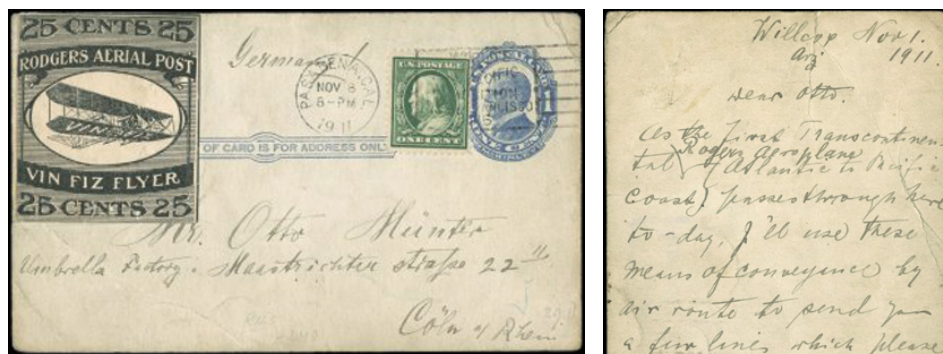 25 CENTS 25
RODGERS AERIAL POST
VIN FIZ
VIN FIZ FLYER
25 CENTS 25
Germany
PASADENA, CAL.
NOV 8
8-PM
1911
U.S. POSTAGE
ONE CENT
OF CARD IS FOR ADDRESS ONLY
Mr. Otto Münter
Umbrella Factory. Maastrichter strasse 22
Cöln a/ Rhein.
Willcox Nov 1.
Ariz 1911.
Dear Otto.
As the first Transcontinen-
tal (Rogers Aeroplane
Atlantic to Pacific
Coast) passes through here
to-day, I'll use these
means of conveyance by
air route to send you
a few lines which please